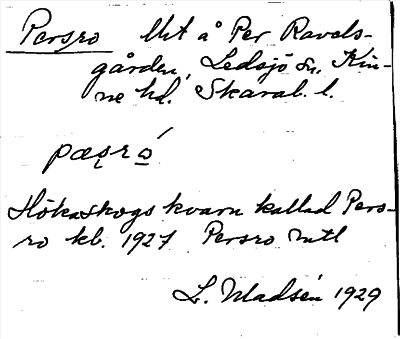 Persro Utt å Per Ravels-
gården, Ledsjö sn, Kin-
ne hd. Skarab. l.
pæsro
Hökaskogs kvarn kallad Pers-
ro kb. 1927 Persro mtl
L. Madsén 1929